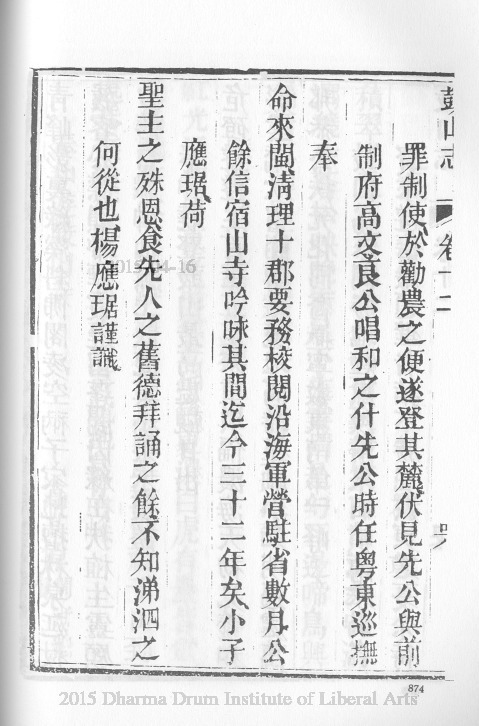 鼓山志 卷十二
罪制使於勸農之便遂登其麓伏見先公與前
制府高文良公唱和之什先公時任粵東巡撫
奉
命來閩清理十郡要務校閱沿海軍營駐省數月公
餘信宿山寺吟咏其間迄今三十二年矣小子
應琚荷
聖主之殊恩食先人之舊德拜誦之餘不知涕泗之
何從也楊應琚謹識
2015-04-16
2015 Dharma Drum Institute of Liberal Arts
874